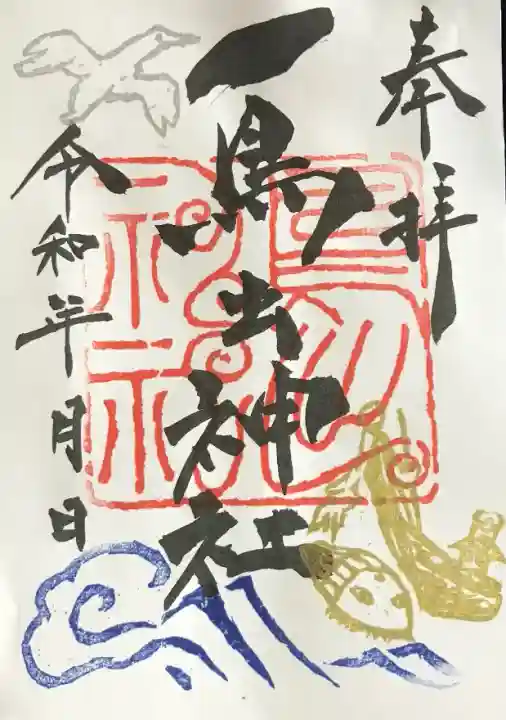 奉拝
鳥出神社
令和年月日